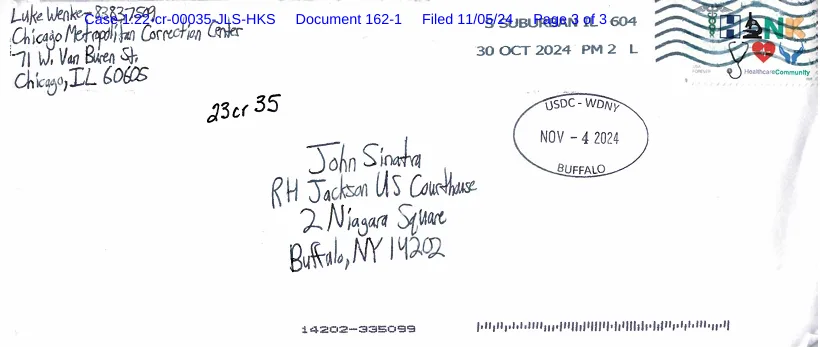 Case 1:22-cr-00035-JLS-HKS Document 162-1 Filed 11/05/24 Page 3 of 3
Luke Wenke 83837509
Chicago Metropolitan Correction Center
71 W. Van Buren St.
Chicago, IL 60605
S SUBURBAN IL 604
30 OCT 2024 PM 2 L
HealthcareCommunity
23cr35
USDC - WDNY
NOV - 4 2024
BUFFALO
John Sinatra
RH Jackson US Courthouse
2 Niagara Square
Buffalo, NY 14202
14202-335099